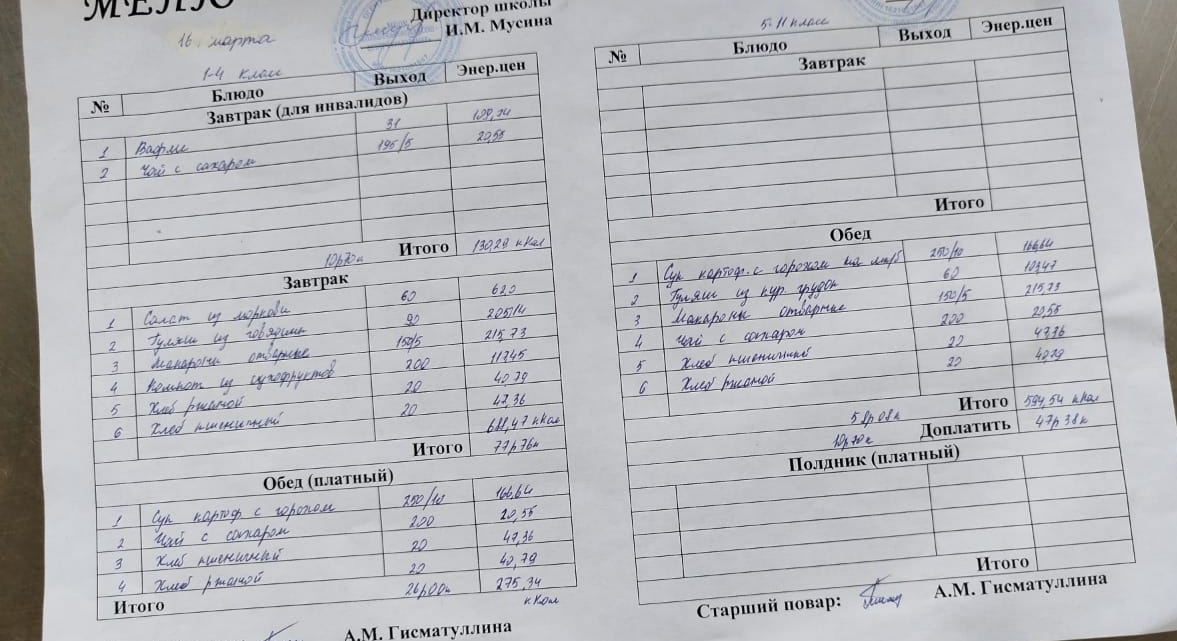 МЕНЮ
Директор школы
И.М. Мусина
16 марта
1-4 класс
№ Блюдо Выход Энер.цен
Завтрак (для инвалидов)
1 Вафли 31 109,74
2 Чай с сахаром 195/5 20,55
10р70к Итого 130,29 кКал
Завтрак
1 Салат из моркови 60 62,0
2 Гуляш из говядины 90 205,14
3 Макароны отварные 150/5 215,73
4 Компот из сухофруктов 200 117,45
5 Хлеб ржаной 20 40,79
6 Хлеб пшеничный 20 47,36
688,47 кКал
Итого 77р76к
Обед (платный)
1 Суп картоф. с горохом 250/10 166,64
2 Чай с сахаром 200 20,55
3 Хлеб пшеничный 20 47,36
4 Хлеб ржаной 20 40,79
Итого 26р00к 275,34
кКал
А.М. Гисматуллина
5-11 класс
№ Блюдо Выход Энер.цен
Завтрак
Итого
Обед
1 Суп картоф. с горохом на м/б 250/10 166,64
2 Гуляш из кур. грудок 60 103,47
3 Макароны отварные 150/5 215,73
4 Чай с сахаром 200 20,55
5 Хлеб пшеничный 20 47,36
6 Хлеб ржаной 20 40,79
Итого 594,54 кКал
58р08к
10р70к Доплатить 47р38к
Полдник (платный)
Итого
Старший повар: А.М. Гисматуллина